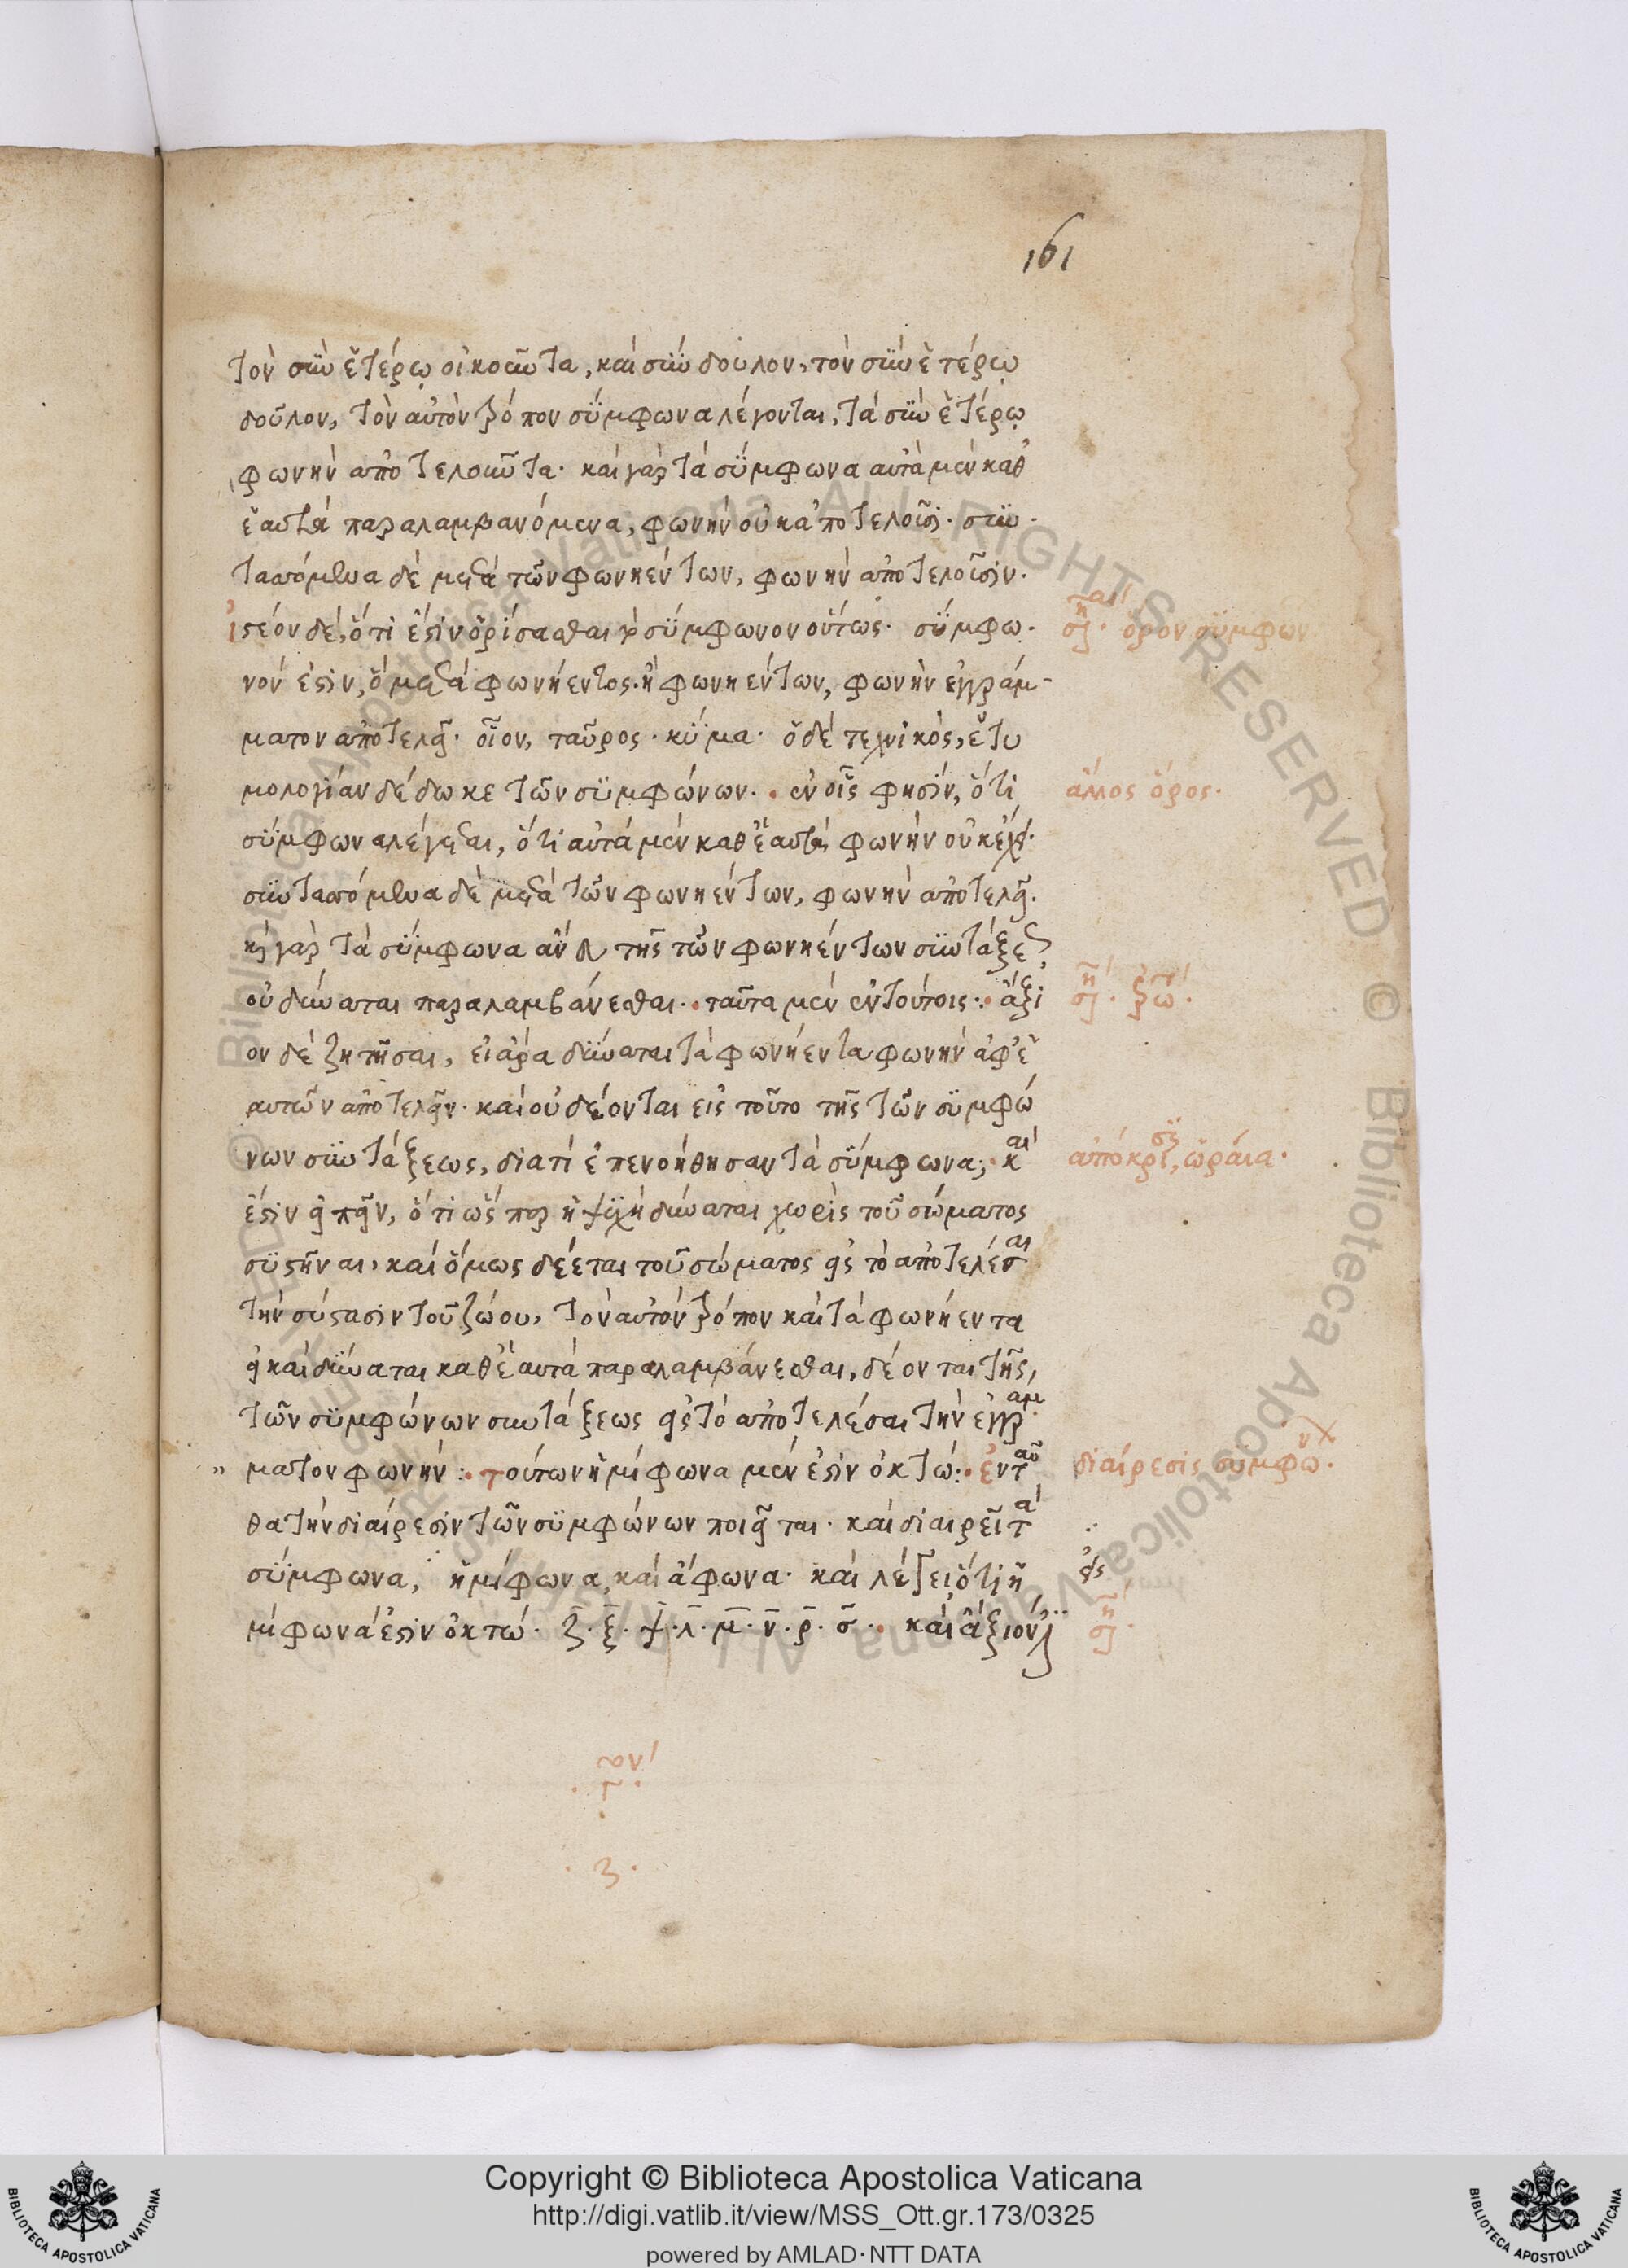 161
τὸν σὺν ἑτέρῳ οἰκοῦντα, καὶ σύνδουλον, τὸν σὺν ἑτέρῳ
δοῦλον, τὸν αὐτὸν τρόπον σύμφωνα λέγονται, τὰ σὺν ἑτέρῳ
φωνὴν ἀποτελοῦντα· καὶ γὰρ τὰ σύμφωνα αὐτὰ μὲν καθ
ἑαυτὰ παραλαμβανόμενα, φωνὴν οὐκ ἀποτελοῦσι· συν
ταττόμενα δὲ μετὰ τῶν φωνηέντων, φωνὴν ἀποτελοῦσιν·
ἰστέον δέ, ὅτι ἔστιν ὁρίσασθαι τὸ σύμφωνον οὕτως· σύμφω
ὅρον σύμφων
νόν ἐστιν, ὃ μετὰ φωνήεντος· ἢ φωνηέντων, φωνὴν ἐγγράμ
ματον ἀποτελεῖ· οἷον, ταῦρος· κῦμα· ὁ δὲ τεχνικὸς, ἐτυ
μολογίαν δέδωκε τῶν συμφώνων· ἐν οἷς φησὶν, ὅτι
ἄλλος ὅρος·
σύμφωνα λέγεται, ὅτι αὐτὰ μὲν καθ ἑαυτὰ φωνὴν οὐκ ἔχει·
συνταττόμενα δὲ μετὰ τῶν φωνηέντων, φωνὴν ἀποτελεῖ·
καὶ γὰρ τὰ σύμφωνα ἄνευ τῆς τῶν φωνηέντων συντάξεως
οὐ δύναται παραλαμβάνεσθαι· ταῦτα μὲν ἐν τούτοις· ἄξι
ον δὲ ζητῆσαι, εἰ ἄρα δύναται τὰ φωνήεντα φωνὴν ἀφ ἑ
αυτῶν ἀποτελεῖν· καὶ οὐ δέονται εἰς τοῦτο τῆς τῶν συμφώ
νων συντάξεως, διατί ἐπενοήθησαν τὰ σύμφωνα; καὶ
ἀπόκρισις, ὡραία·
ἔστιν εἰπεῖν, ὅτι ὥσπερ ἡ ψυχὴ δύναται χωρὶς τοῦ σώματος
συστῆναι, καὶ ὅμως δέεται τοῦ σώματος εἰς τὸ ἀποτελέσαι
τὴν σύστασιν τοῦ ζώου, τὸν αὐτὸν τρόπον καὶ τὰ φωνήεντα
εἰ καὶ δύναται καθ ἑαυτὰ παραλαμβάνεσθαι, δέονται τῆς,
τῶν συμφώνων συντάξεως εἰς τὸ ἀποτελέσαι τὴν ἐγγράμ
ματον φωνήν· τούτων ἡμίφωνα μέν ἐστιν ὀκτώ· ἐνταῦ
διαίρεσις συμφώνων·
θα τὴν διαίρεσιν τῶν συμφώνων ποιεῖται· καὶ διαιρεῖ τὰ
σύμφωνα, ἡμίφωνα, καὶ ἄφωνα· καὶ λέγει, ὅτι ἡ
μίφωνά ἐστιν ὀκτώ· ζ· ξ· ψ· λ· μ· ν· ρ· σ· καὶ ἄξιον
Copyright © Biblioteca Apostolica Vaticana
http://digi.vatlib.it/view/MSS_Ott.gr.173/0325
powered by AMLAD·NTT DATA
BIBLIOTECA APOSTOLICA VATICANA
BIBLIOTECA APOSTOLICA VATICANA